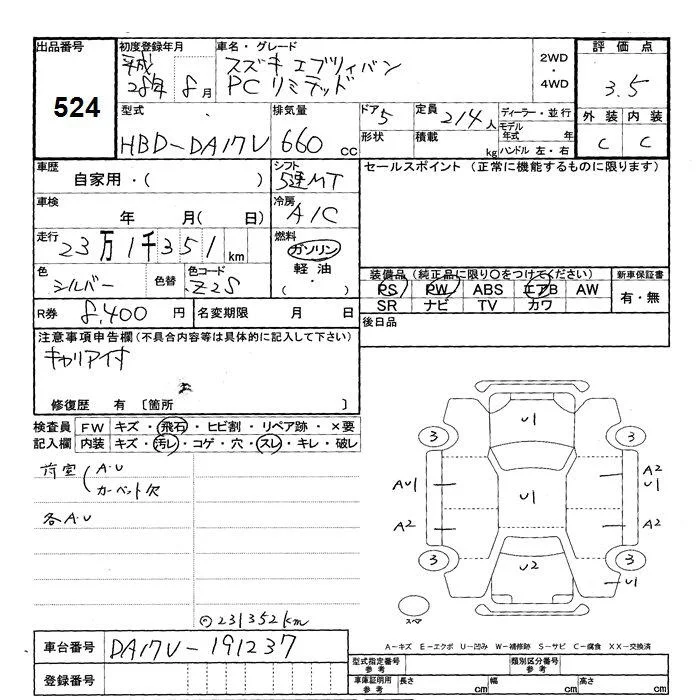 出品番号 初度登録年月 車名・グレード 2WD・4WD 評価点
524
平成28年8月 スズキ エブリィバン
PCリミテッド
3.5
型式 排気量 ドア 定員 ディーラー・並行 外装 内装
HBD-DA17V 660cc 5 2/4人 モデル年式 年 C C
形状 積載 kg ハンドル 左・右
車歴 シフト セールスポイント（正常に機能するものに限ります）
自家用・( ) 5速MT
車検 冷房
年 月( 日) A/C
走行 燃料
23万1千351km ガソリン
軽油
・
( )
色 色替 色コード 装備品（純正品に限り○をつけてください） 新車保証書
シルバー Z2S PS PW ABS エアB AW 有・無
SR ナビ TV カワ
R券 8,400円 名変期限 月 日 後日品
注意事項申告欄（不具合内容等は具体的に記入して下さい）
キャリア付
修復歴 有 〔箇所 〕
検査員 FW キズ・飛石・ヒビ割・リペア跡・×要
記入欄 内装 キズ・汚レ・コゲ・穴・スレ・キレ・破レ
荷室 A.U
カーペット欠
各A.U
U1
3 3
AU1 A2
U1
U1
A2 A2
3 3
U2
U1
スペア
231352km
車台番号 DA17V-191237
A－キズ E－エクボ U－凹み W－補修跡 S－サビ C－腐食 XX－交換済
登録番号
型式指定番号 参考 類別区分番号 参考
車庫証明用 参考 長さ cm 幅 cm 高さ cm